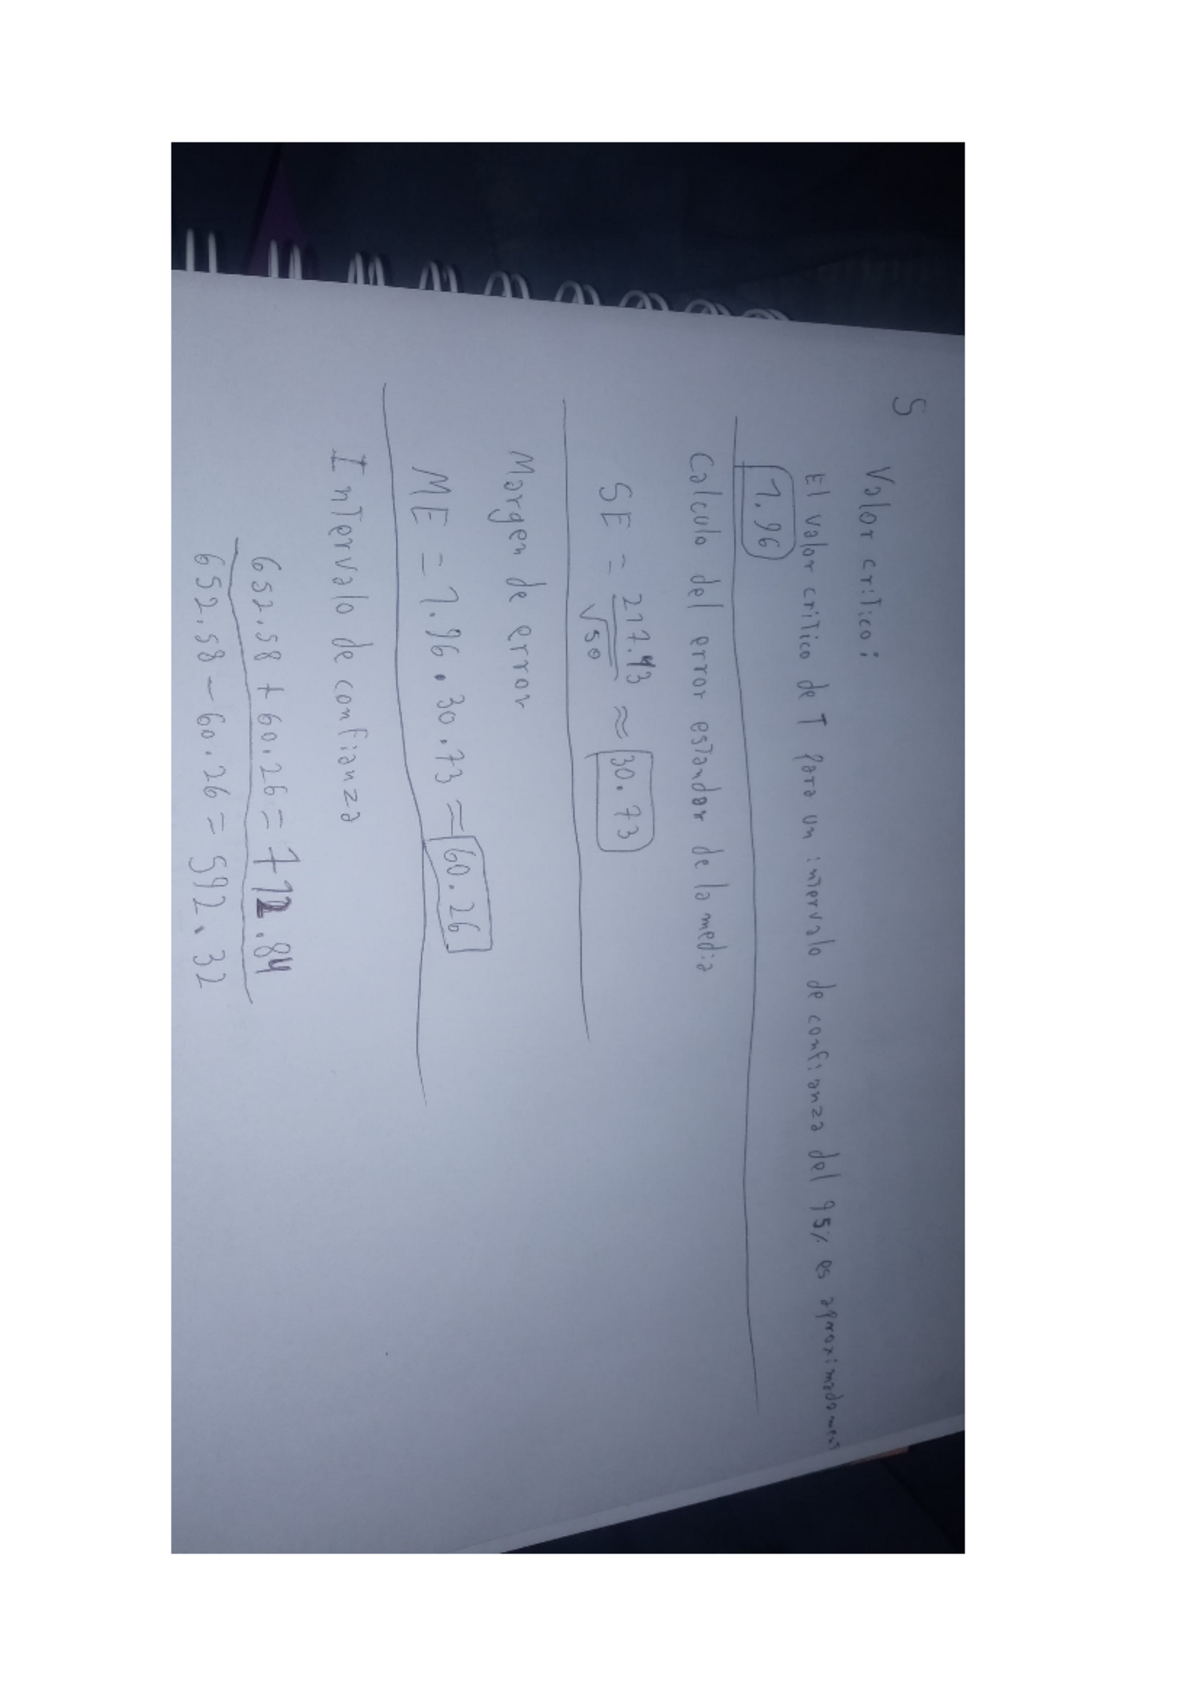 5
Valor critico:
El valor critico de T para un intervalo de confianza del 95% es aproximadament
1.96
Calculo del error estandar de la media
SE = 217.43 / √50 ≈ 30.73
Margen de error
ME = 1.96 · 30.73 ≈ 60.26
Intervalo de confianza
652.58 + 60.26 = 712.84
652.58 - 60.26 = 592.32